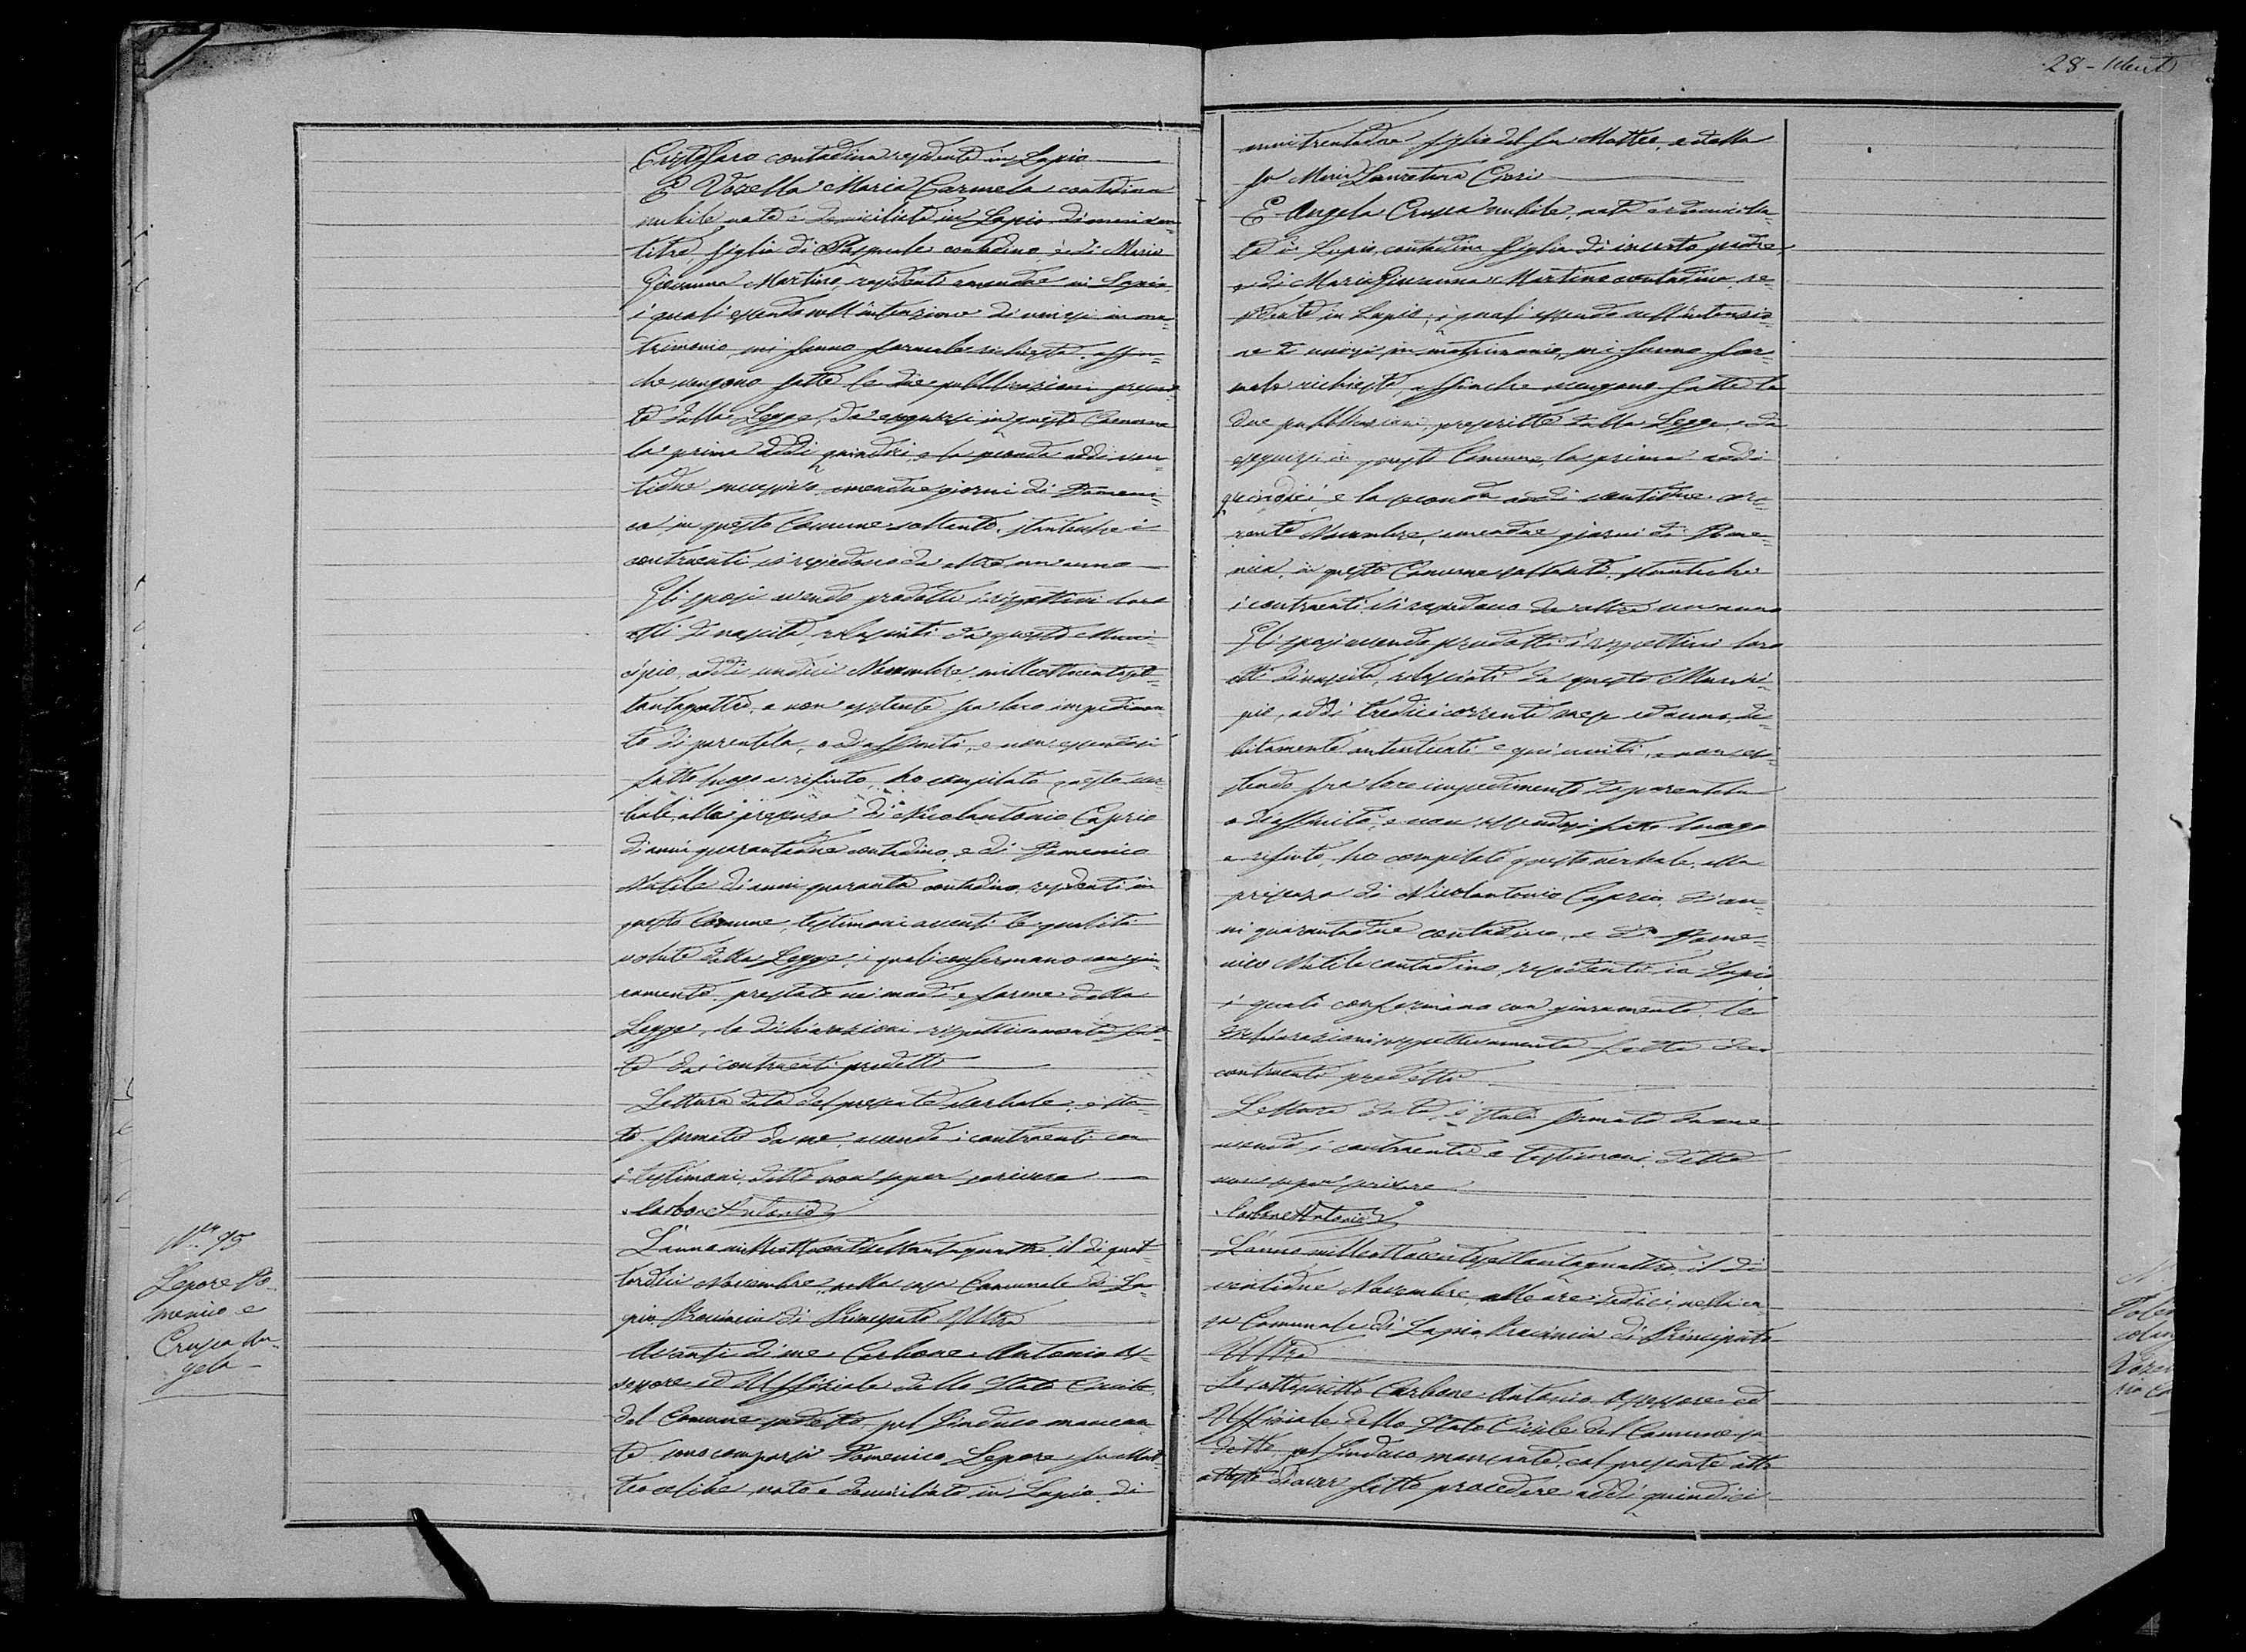 Cristofaro contadina residente in Lapio
E Vozella Maria Carmela contadina
nubile nata e domiciliata in Lapio di anni ven-
titre, figlia di Pasquale contadino, e di Maria
Giovanna Martino, residenti amendue in Lapio,
i quali essendo nell'intenzione di unirsi in ma-
trimonio, mi fanno formale richiesta, affin-
che vengano fatte le due pubblicazioni prescrit-
te dalla Legge, da eseguirsi in questo Comune
la prima addì quindici, e la seconda addì ven-
tidue successivo amendue giorni di Domeni-
ca, in questo Comune soltanto, stanteche i
contraenti vi risiedono da oltre un anno
Gli sposi avendo prodotti i rispettivi loro
atti di nascita, rilasciati da questo Muni-
cipio, addì undici Novembre milleottocentoset-
tantaquattro, e non esistente fra loro impedimen-
to di parentela, o d'affinità, e non essendosi
fatto luogo a rifiuto, ho compilato questo ver-
bale, alla presenza di Nicolantonio Caprio
di anni quarantadue contadino, e di Domenico
Natile di anni quaranta contadino, residenti in
questo Comune, testimoni aventi le qualità
volute dalla Legge, i quali confermano con giu-
ramento prestato nei modi e forme della
Legge, le dichiarazioni rispettivamente fat-
te dai contraenti predetti
Lettura data del presente verbale, è sta-
to firmato da me, avendo i contraenti con
i testimoni detto non saper scrivere
Carbone Antonio
N.º 75
Lepore Do-
menico e
Crupa An-
gela
L'anno milleottocentosettantaquattro il dì quat-
tordici Novembre, nella casa Comunale di La-
pio Provincia di Principato Ultra
Avanti di me Carbone Antonio As-
sessore ed Uffiziale dello Stato Civile
del Comune sudetto, pel Sindaco mancan-
te sono comparsi Domenico Lepore fu Mat-
teo celibe, nato e domiciliato in Lapio, di
28
anni trentadue, figlio del fu Matteo, e della
fu Maria
E Angela Crupa nubile, nata e domicilia-
ta in Lapio, contadina figlia di incerto padre,
e di Maria Giovanna Martino contadina, re-
sidente in Lapio, i quali essendo nell'intenzio-
ne di unirsi in matrimonio, mi fanno for-
male richiesta, affinche vengano fatte le
due pubblicazioni, prescritte dalla Legge, da
eseguirsi in questo Comune, la prima addì
quindici, e la seconda addì ventidue cor-
rente Novembre, amendue giorni di Dome-
nica, in questo Comune soltanto, stanteche
i contraenti vi risiedono da oltre un anno
Gli sposi avendo prodotti i rispettivi loro
atti di nascita, rilasciati da questo Munici-
pio, addì tredici corrente mese ed anno, de-
bitamente autenticati e qui uniti, e non esi-
stendo fra loro impedimento di parentela
o di affinità, e non essendosi fatto luogo
a rifiuto, ho compilato questo verbale, alla
presenza di Nicolantonio Caprio, di an-
ni quarantadue contadino, e di Dome-
nico Natile contadino, residenti in Lapio
i quali confermano con giuramento le
dichiarazioni rispettivamente fatte dai
contraenti predetti
Lettura data, è stato firmato da me
avendo i contraenti e testimoni detto
non saper scrivere
Carbone Antonio
L'anno milleottocentosettantaquattro, il dì
ventidue Novembre, alle ore sedici, nella ca-
sa Comunale di Lapio Provincia di Principato
Ultra
Io sottoscritto Carbone Antonio Assessore ed
Uffiziale dello Stato Civile del Comune su-
detto, pel Sindaco mancante, col presente atto
attesto di aver fatto procedere addì quindici